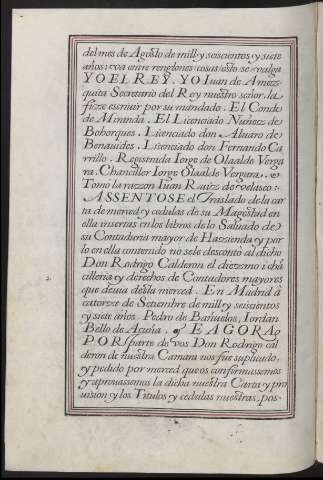 del mes de Agosto de mill y seiscientos y siete
años: va entre renglones: cosas: esto se valga
YO EL REY. YO Iuan de Amez-
quita Secretario del Rey nuestro señor la
fize escriuir por su mandado. El Conde
de Miranda. El Licenciado Nuñez de
Bohorques. Licenciado don Aluaro de
Benauides. Licenciado don Fernando Ca
rrillo. Registrada Iorge de Olaalde Verga
ra. Chanciller Iorge Olaalde Vergara.
Tomo la razzon Iuan Ruiz de Velasco:
ASSENTOSE el Traslado de la car
ta de merced y cedulas de su Magestad en
ella insertas en los libros de lo Saluado de
su Contaduria mayor de Hazienda y por
lo en ella contenido no se le desconto al dicho
Don Rodrigo Calderon el diezmo i chā
cilleria y derechos de Contadores mayores
que deuia desta merced. En Madrid à
catorze de Setiembre de mill y seiscientos
y siete años. Pedro de Bañuelos, Iordan
Bello de Acuña. E AGORA
POR parte de vos Don Rodrigo cal
deron de nuestra Camara nos fue suplicado,
y pedido por merced que os confirmassemos
y aprouassemos la dicha nuestra Carta y pro
uision y los Titulos y cedulas nuestras, pos-